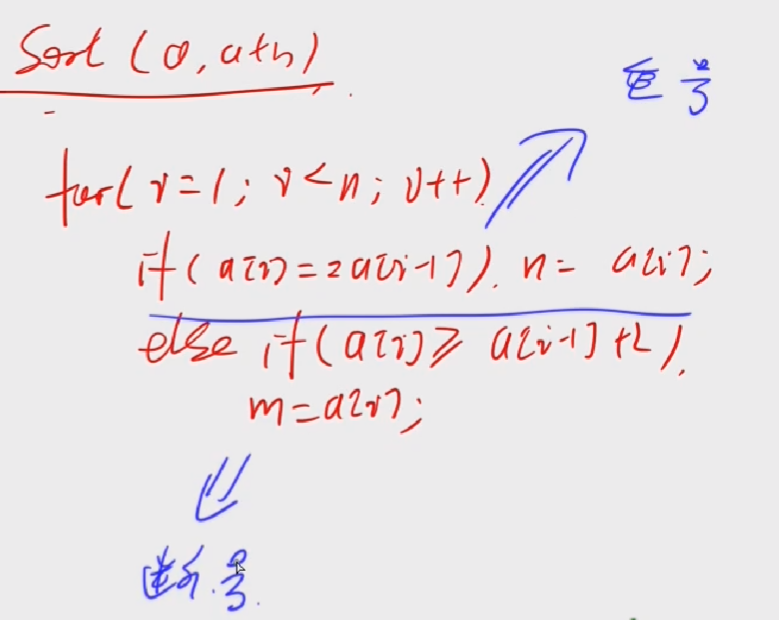 Sort (a, a+n)
重号
for(i=1; i<n; i++)
if( a[i]==a[i-1]). n= a[i];
else if(a[i]≥ a[i-1]+2).
m=a[i];
断号.